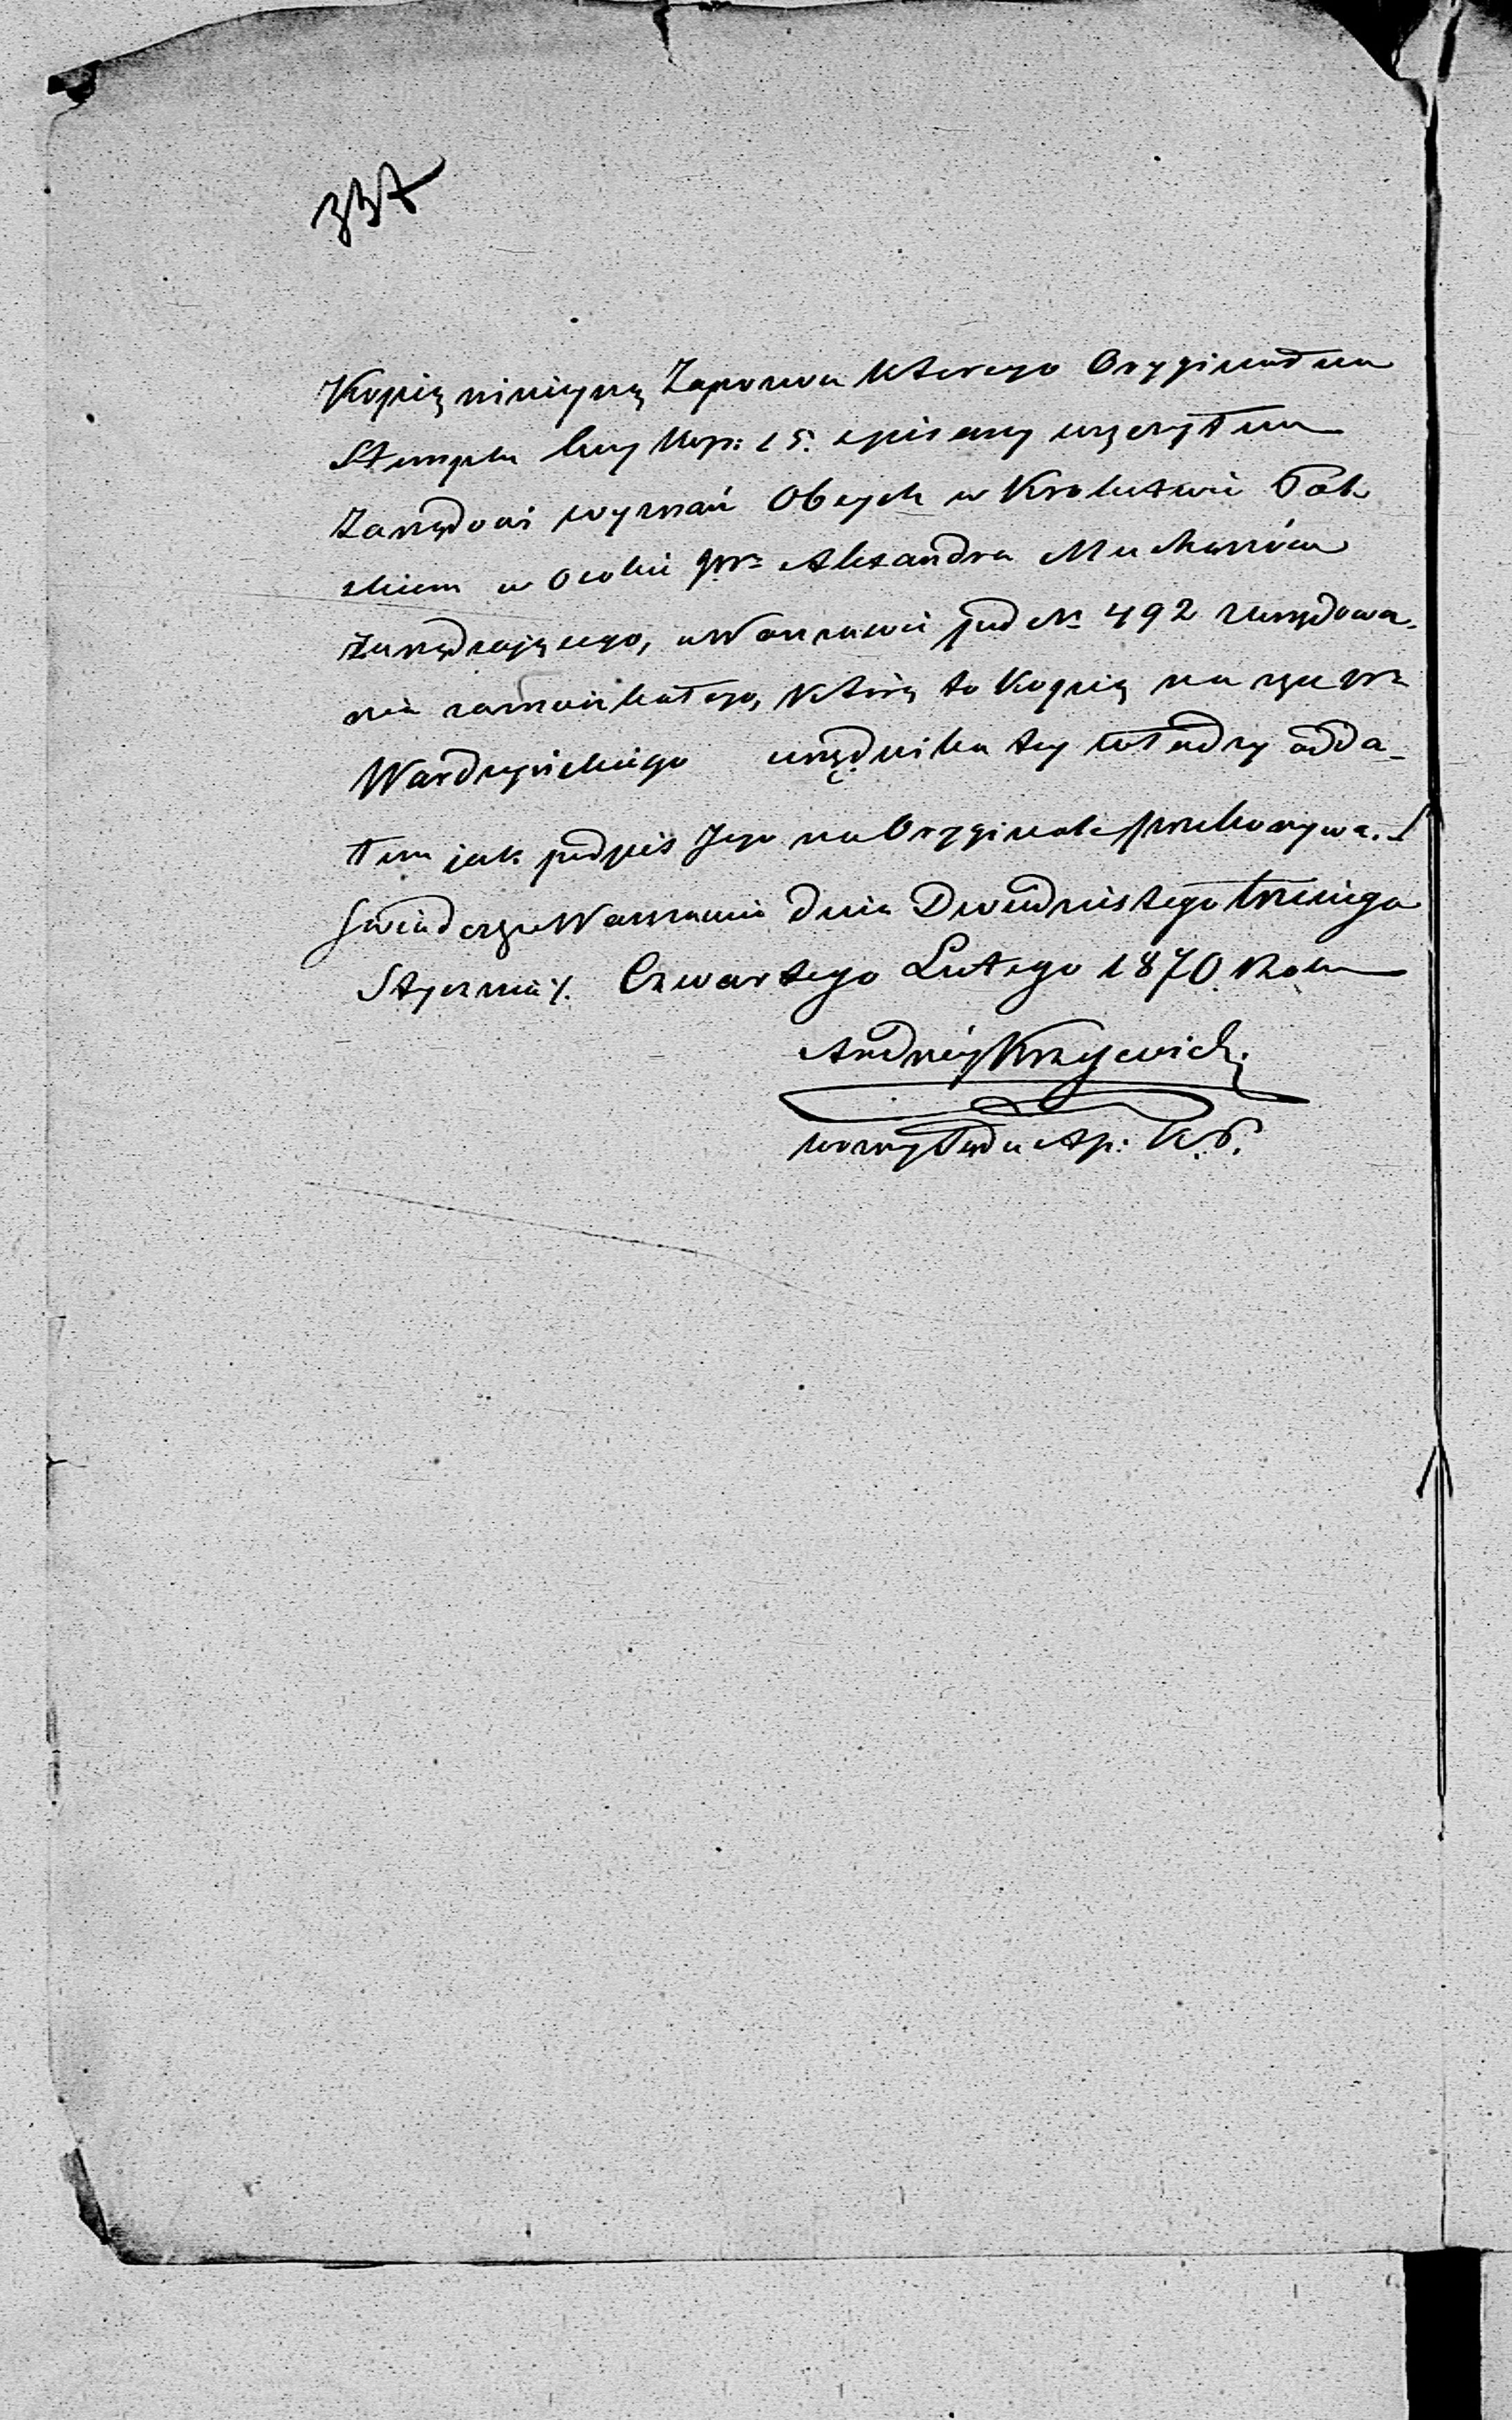 337
Kopię niniejszą Zapozwu którego Oryginał na
Stemplu ceny kop: 15. spisany wręczyłem
Zarządowi wyznań Obcych w Krolestwie Pol
skiem w osobie JW Alexandra Muchanów
Zarządzającego, w Warszawie pod N 492 urzędowa-
nie zamieszkałego, którą to Kopię na ręce W
Wardzyńskiego urzędnika tej władzy odda-
łem jak podpis Jego na Oryginale przekonywa.
Świadczę w Warszawie dnia Dwudziestego trzeciego
Stycznia /. Czwartego Lutego 1870. Roku
Andrzej Krzycwicki
woźny Sądu Ap: K.P.